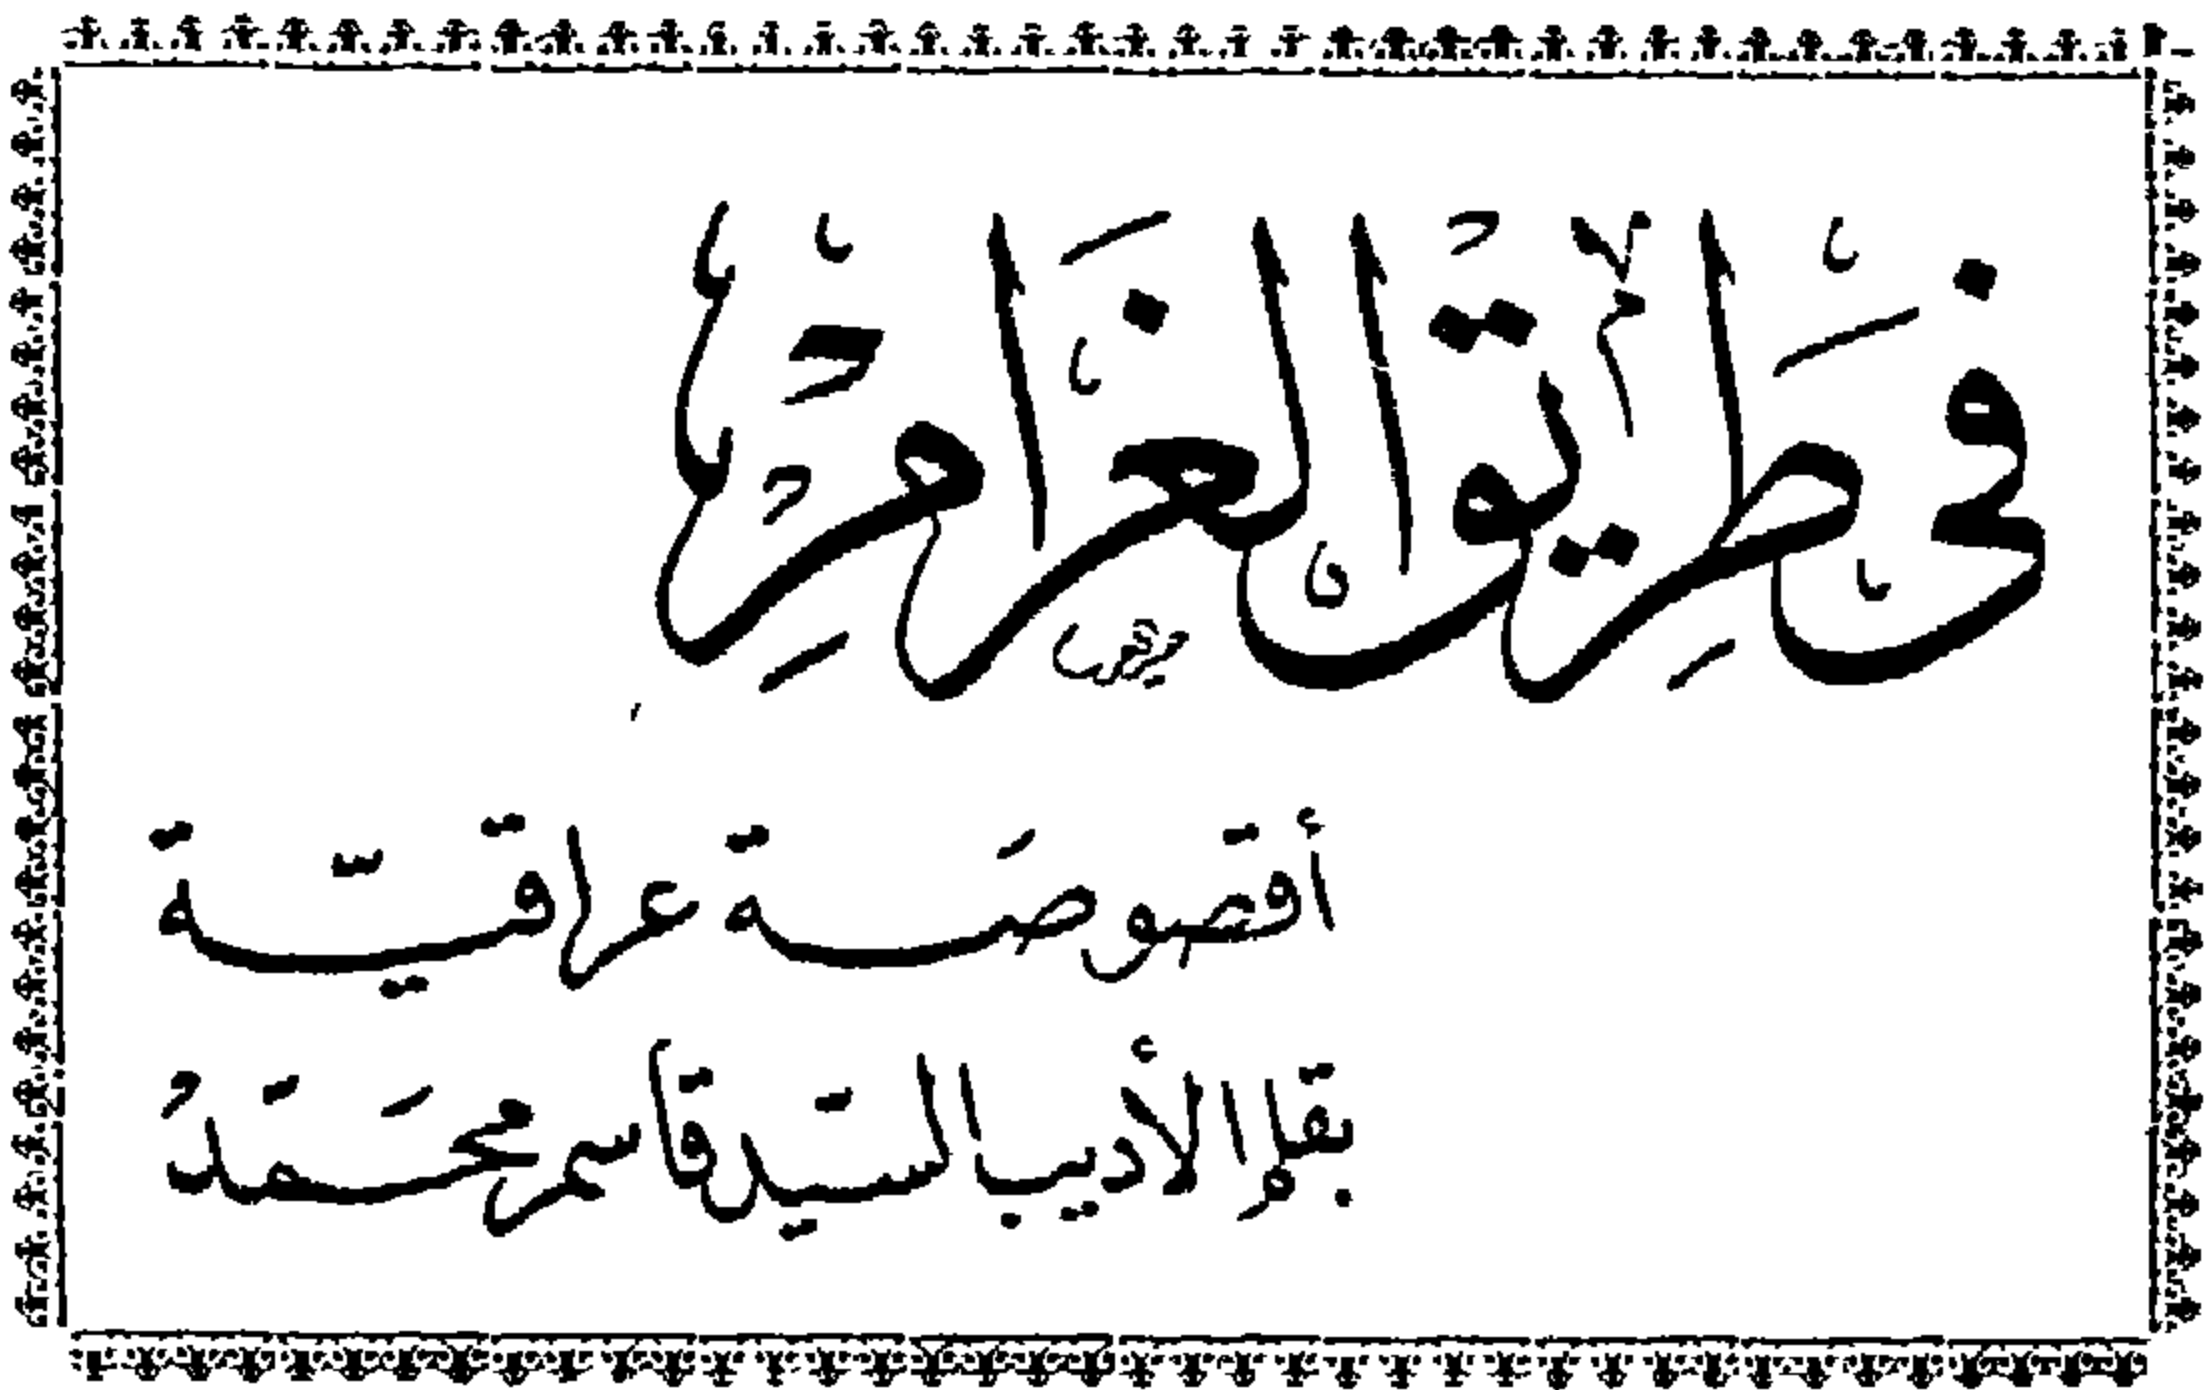 في طَرِيق الغَرَامِ
أقصوصَة عراقيّة
بقلم الأديب السّيد قاسم محَمّدُ